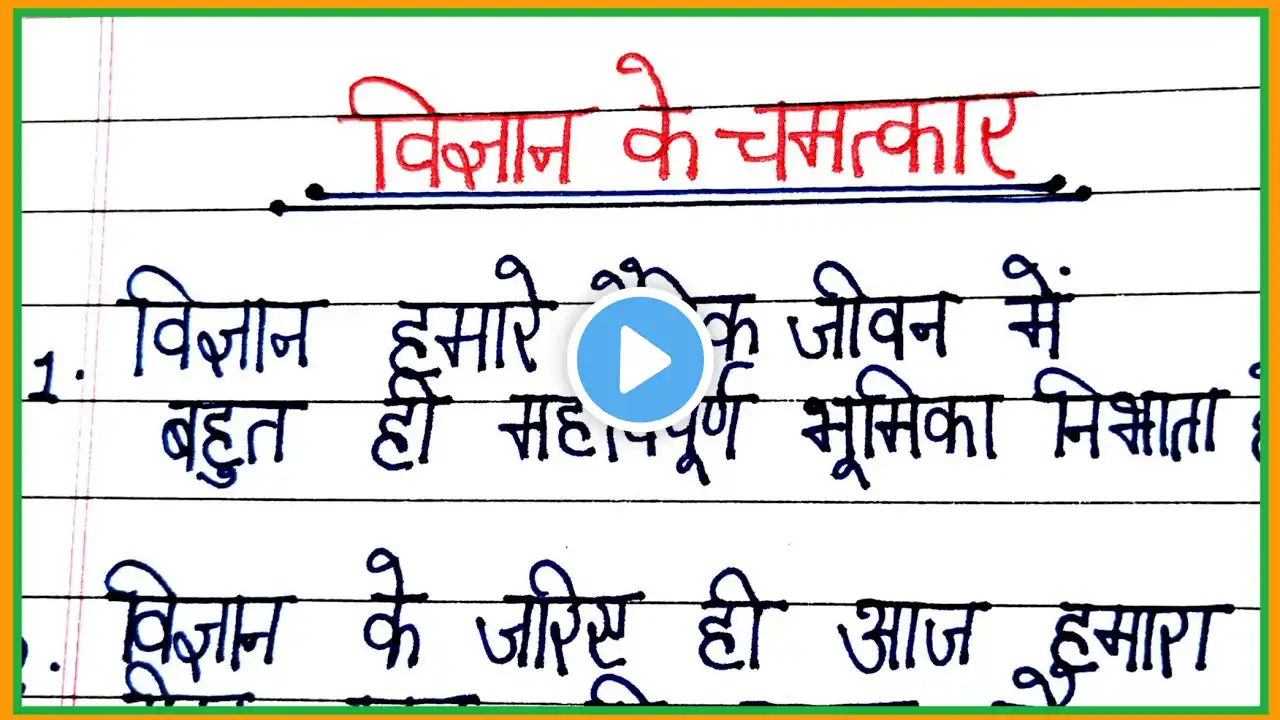 विज्ञान के चमत्कार
1. विज्ञान हमारे जीवन में
बहुत ही भूमिका निभाता
विज्ञान के जरिए ही आज हमारा